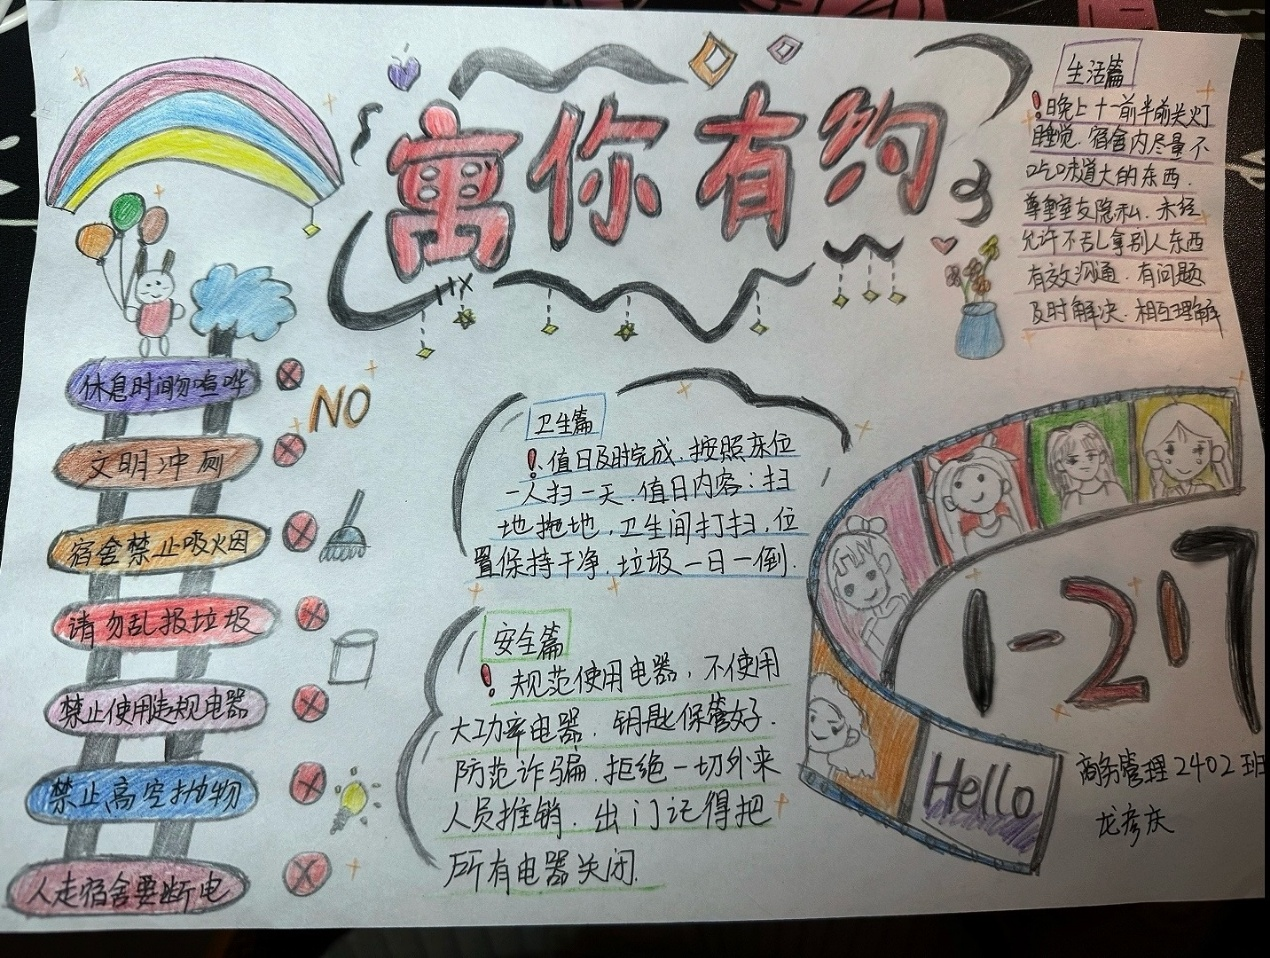 寓你有约
生活篇
!日晚上十一前半前关灯
睡觉.宿舍内尽量不
吃味道大的东西.
尊重室友隐私.未经
允许不乱拿别人东西
有效沟通.有问题
及时解决.相互理解
休息时间勿喧哗
NO
文明冲厕
宿舍禁止吸火因
请勿乱报垃圾
禁止使用违规电器
禁止高空抛物
人走宿舍要断电
卫生篇
!.值日及时完成.按照床位
一人扫一天.值日内容:扫
地拖地,卫生间打扫,位
置保持干净.垃圾一日一倒.
安全篇
!规范使用电器,不使用
大功率电器.钥匙保管好.
防范诈骗.拒绝一切外来
人员推销.出门记得把
所有电器关闭.
1-217
Hello
商务管理2402班
龙彦庆